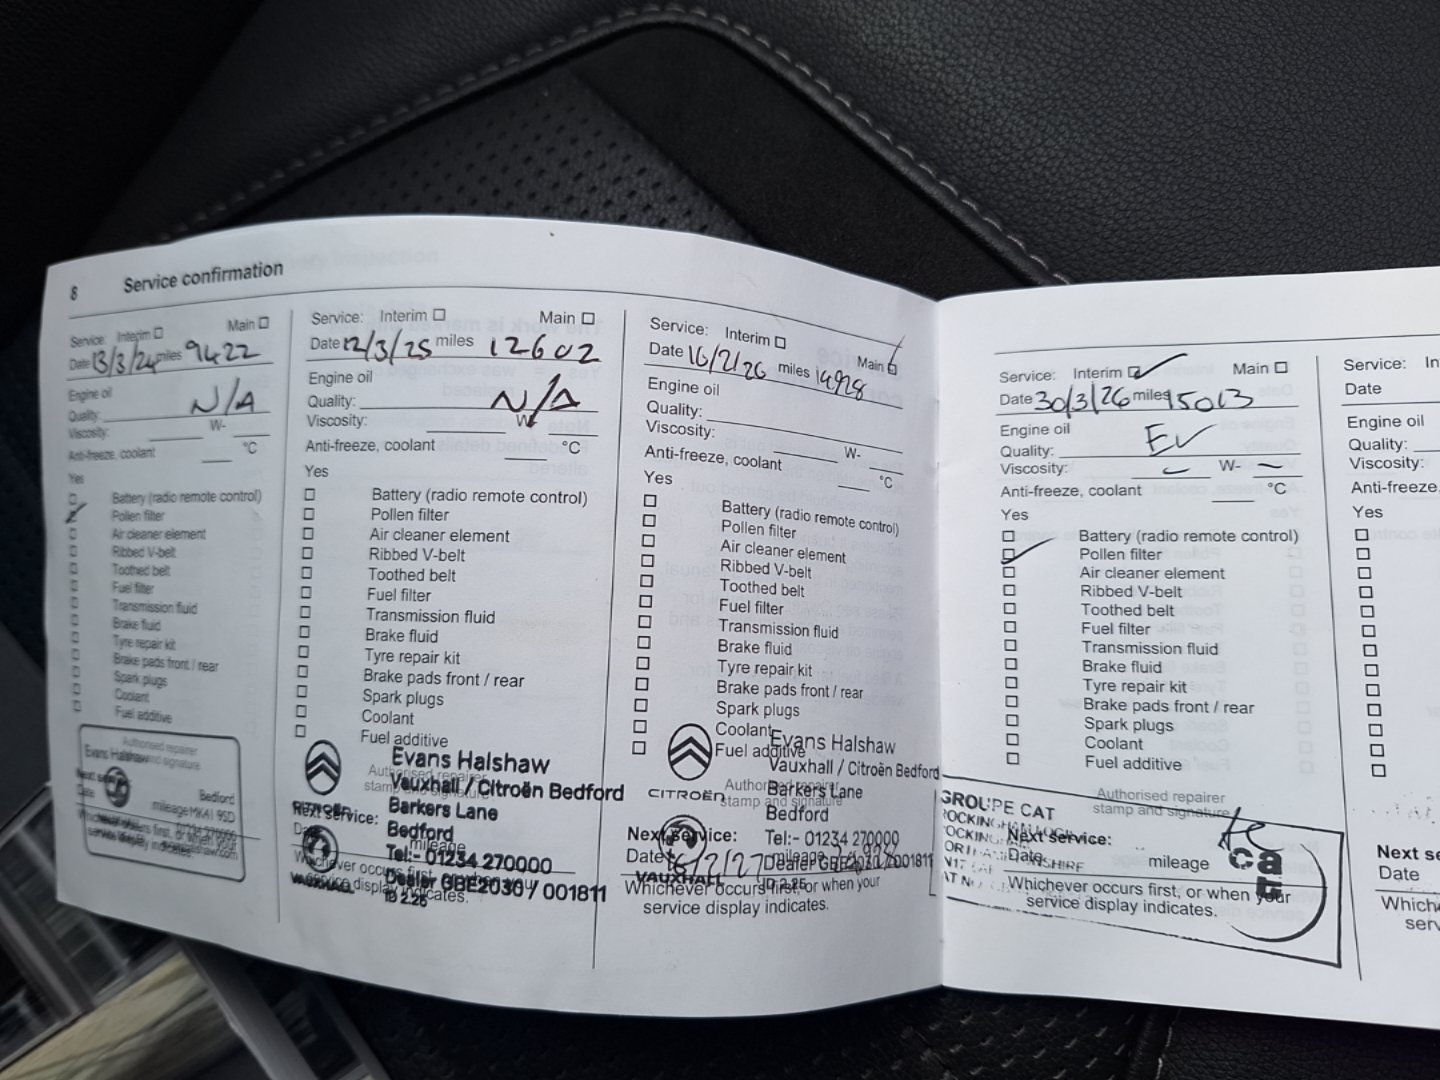 8 Service confirmation
Service: Interim Main
Date 13/3/24 miles 9422
Engine oil
Quality: N/A
Viscosity: W-
Anti-freeze, coolant °C
Yes
Battery (radio remote control)
Pollen filter
Air cleaner element
Ribbed V-belt
Toothed belt
Fuel filter
Transmission fluid
Brake fluid
Tyre repair kit
Brake pads front / rear
Spark plugs
Coolant
Fuel additive
Authorised repairer
Evans Halshaw and signature
Next service:
Bedford
mileage MK41 9SD
Service: Interim Main
Date 12/3/25 miles 12602
Engine oil
Quality: N/A
Viscosity: W-
Anti-freeze, coolant °C
Yes
Battery (radio remote control)
Pollen filter
Air cleaner element
Ribbed V-belt
Toothed belt
Fuel filter
Transmission fluid
Brake fluid
Tyre repair kit
Brake pads front / rear
Spark plugs
Coolant
Fuel additive
Evans Halshaw
Authorised repairer
stamp and signature
Vauxhall / Citroën Bedford
Barkers Lane
Next service:
Bedford
Date mileage
Tel:- 01234 270000
Whichever occurs first, or when your
Dealer GBE2030 / 001811
service display indicates.
Service: Interim Main
Date 16/2/26 miles 14928
Engine oil
Quality:
Viscosity: W-
Anti-freeze, coolant °C
Yes
Battery (radio remote control)
Pollen filter
Air cleaner element
Ribbed V-belt
Toothed belt
Fuel filter
Transmission fluid
Brake fluid
Tyre repair kit
Brake pads front / rear
Spark plugs
Coolant
Fuel additive
Evans Halshaw
Vauxhall / Citroën Bedford
CITROËN
Authorised repairer
stamp and signature
Barkers Lane
Bedford
Next service:
Tel:- 01234 270000
Date 16/2/27 mileage
Dealer GBE2030 / 001811
VAUXHALL
Whichever occurs first, or when your
service display indicates.
Service: Interim Main
Date 30/3/26 miles 15013
Engine oil
Quality: EV
Viscosity: W-
Anti-freeze, coolant °C
Yes
Battery (radio remote control)
Pollen filter
Air cleaner element
Ribbed V-belt
Toothed belt
Fuel filter
Transmission fluid
Brake fluid
Tyre repair kit
Brake pads front / rear
Spark plugs
Coolant
Fuel additive
Authorised repairer
stamp and signature
GROUPE CAT
Next service:
Date mileage
Whichever occurs first, or when your
service display indicates.
Service: In
Date
Engine oil
Quality:
Viscosity:
Anti-freeze,
Yes
Next se
Date
Which
serv